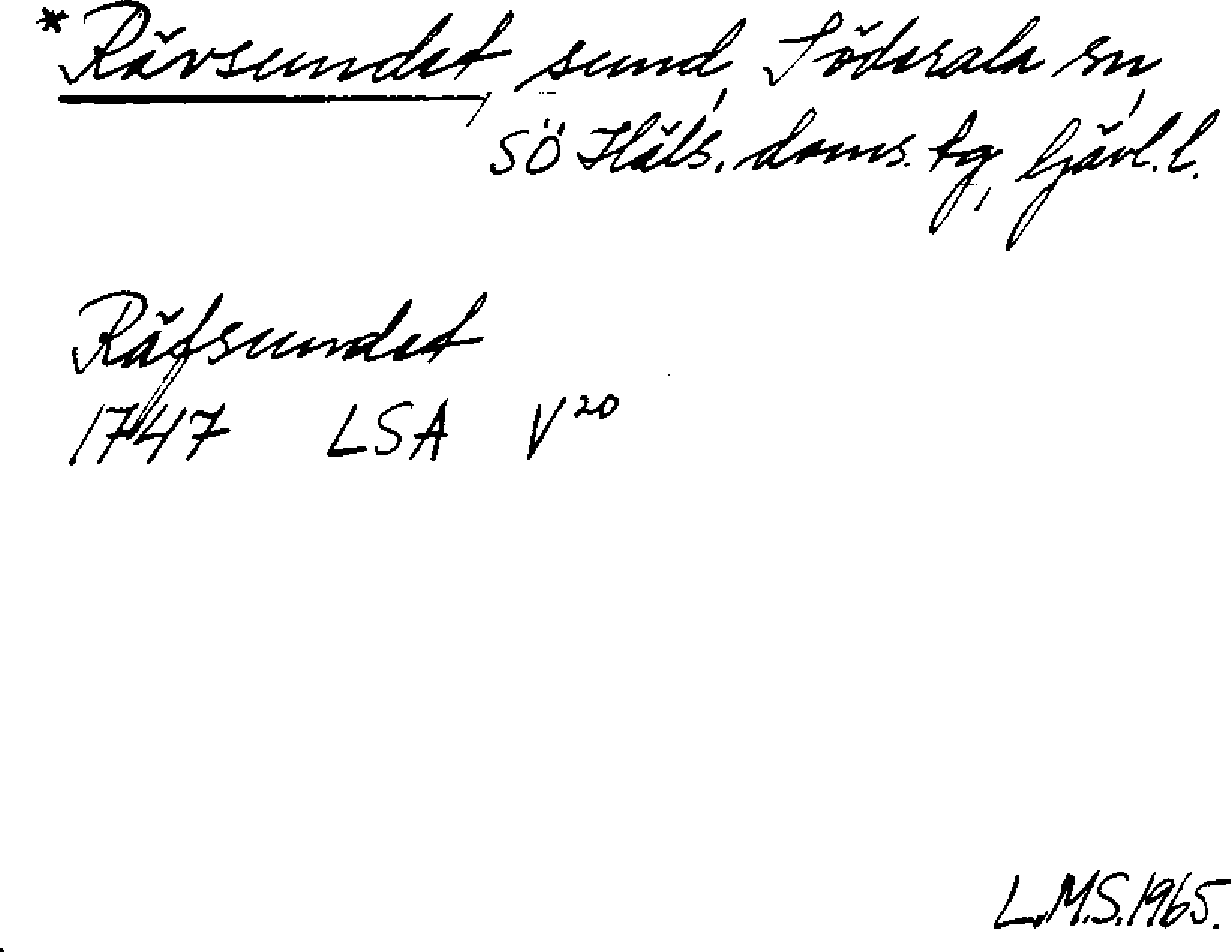 *Rävsundet, sund, Söderala sn,
SÖ Häls. doms. tg, Gävl. l.
Räfsundet
1747 LSA V20
L.M.S. 1965.